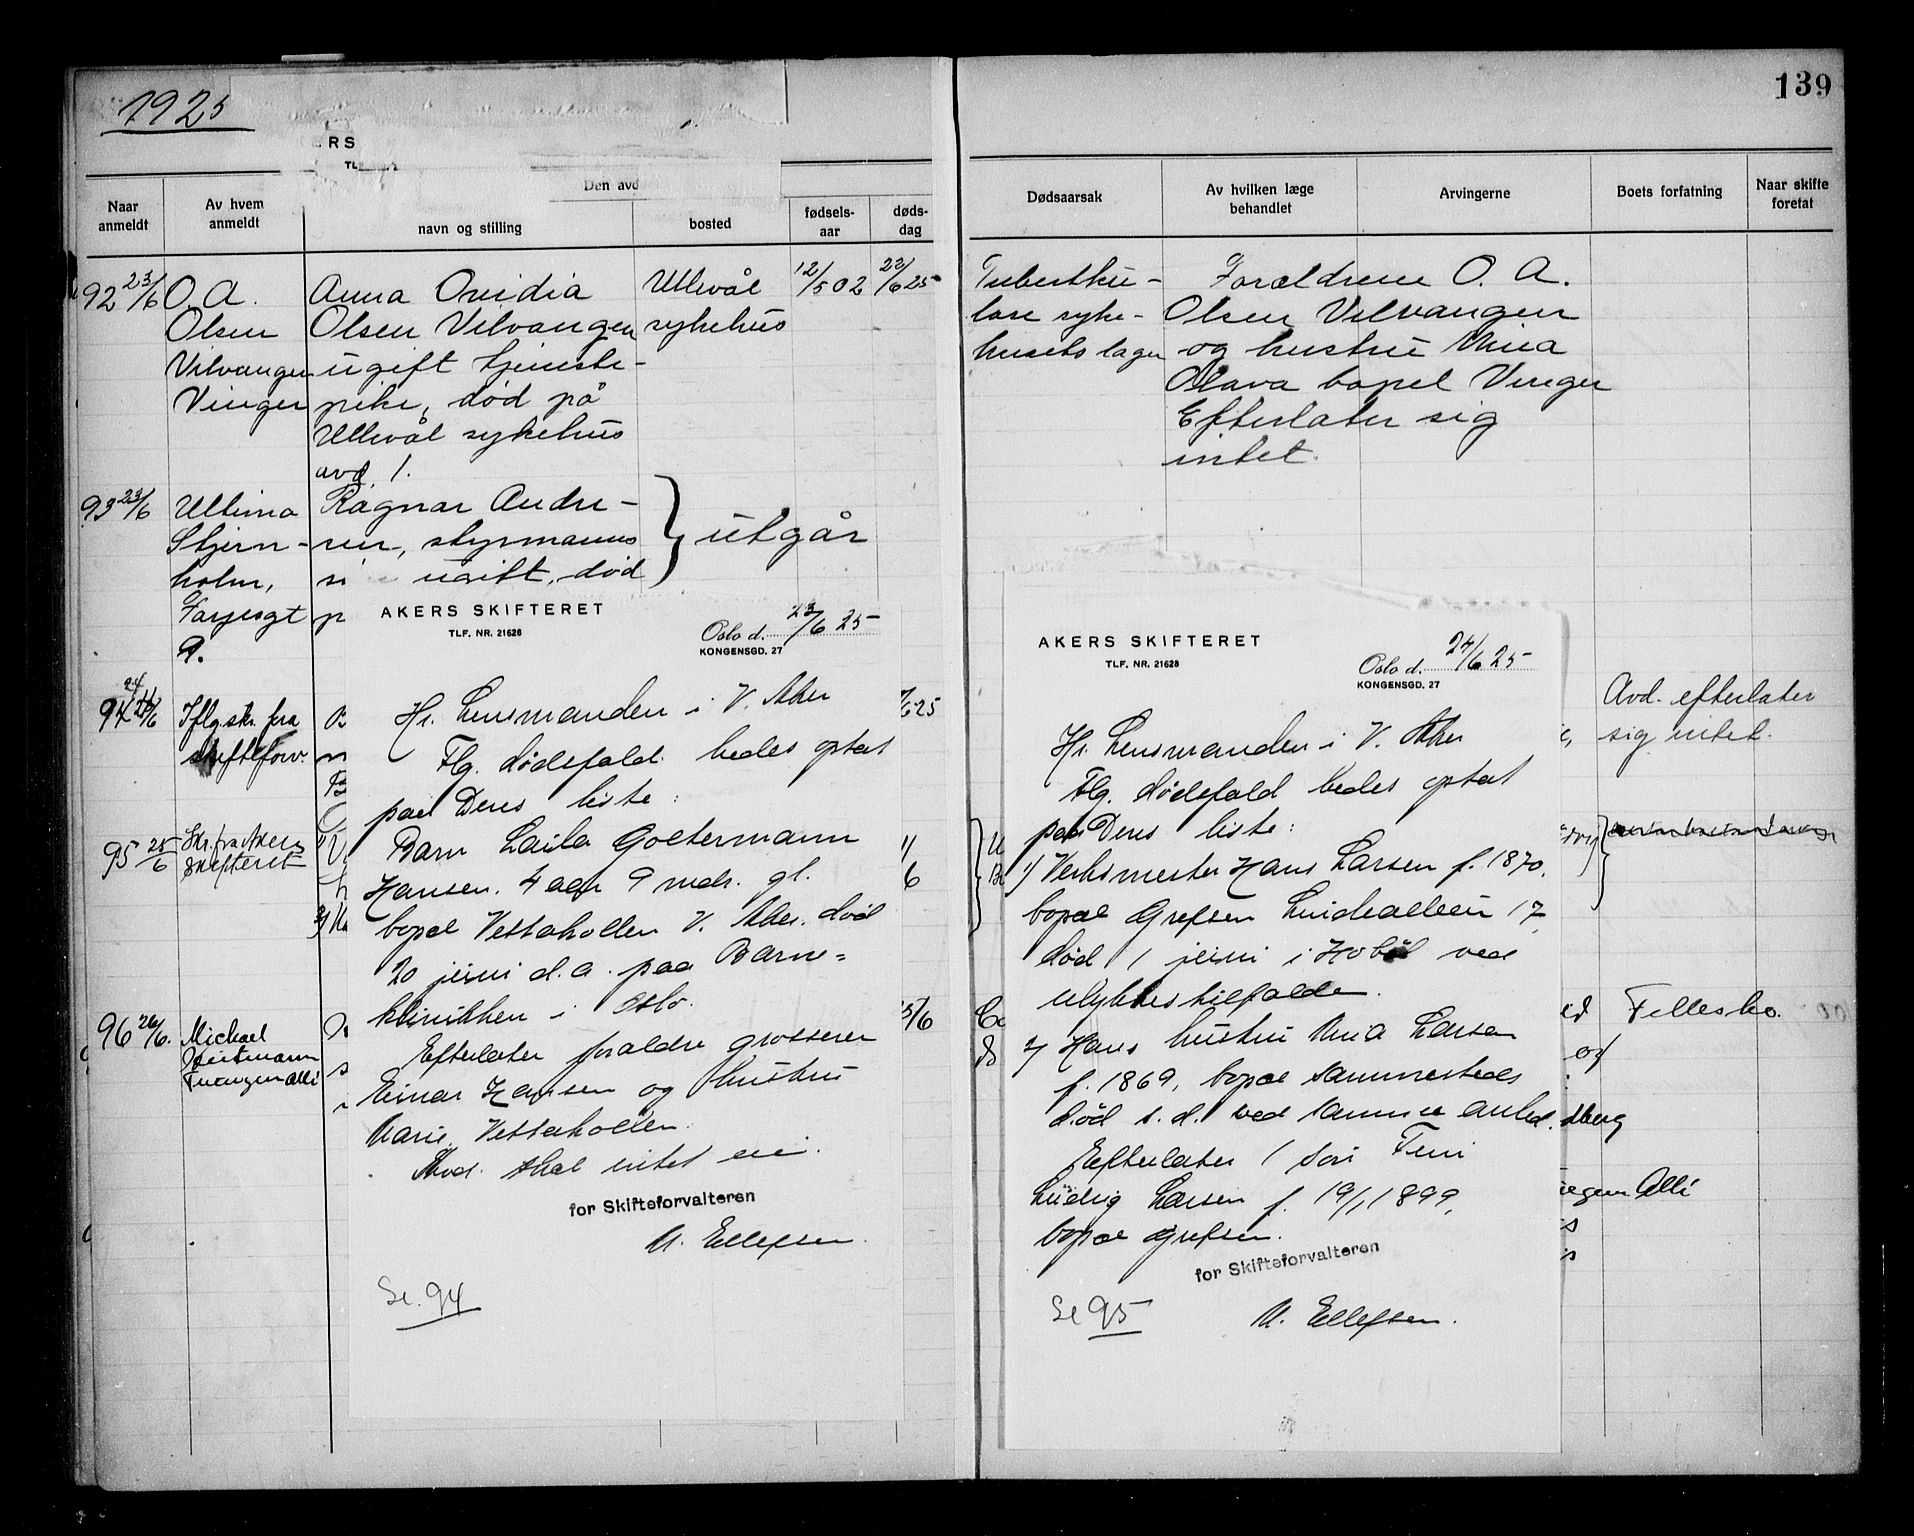 1925
139
ERS
TL
Naar anmeldt
Av hvem anmeldt
Den avd
navn og stilling
bosted
fødsels-aar
døds-dag
Dødsaarsak
Av hvilken læge behandlet
Arvingerne
Boets forfatning
Naar skifte foretat
92 23/6
O. A.
Olsen
Vilvangen
Vinger
Anna Ovidia
Olsen Vilvangen
ugift tjeneste-
pike, død på
Ullevål sykehus
avd. 1.
Ullevål
sykehus
12/5 02
22/6 25
Tuberkku-
løse syke-
husets læger
Forældrene O. A.
Olsen Vilvangen
og hustru Mina
Olava bopel Vinger
Efterlater sig
intet.
93 23/6
Ultima
Stjern-
holm,
Farjesgt
9.
Ragnar Andre-
sen, styrmanns
si ugift, død
p
utgår
94 24/6
Iflg. skr. fra
skifteforv.
/6 25
Avd. efterlater
sig intet.
95 25/6
Skr. fra Akers
skifteret
96 26/6.
Michael
Heitmann
Tuengen allé
/6
Fellesbo.
dberg
uegen Allé
AKERS SKIFTERET
TLF. NR. 21628
Oslo d. 23/6 25
KONGENSGD. 27
Hr. Lensmanden i V. Aker
Flg. dødsfald bedes optat
paa Deres liste:
Barn Laila Goetermann
Hansen. 4 aar 9 mdr. gl.
bopæl Vettakollen V. Aker. død
20 juni d.a. paa Barne=
klinikken i Oslo.
Efterlater foraldre grosserer
Einar Hansen og hustru
Marie, Vettakollen.
Avd. skal intet eie.
for Skifteforvalteren
M. Ellefsen.
Se. 94
AKERS SKIFTERET
TLF. NR. 21628
Oslo d. 24/6 25
KONGENSGD. 27
Hr. Lensmanden i V. Aker
Flg. dødsfald bedes optat
paa Deres liste:
1/ Verksmester Hans Larsen f. 1870,
bopæl Grefsen Lindealleen 17
død 1 juni i Hobøl ved
ulykkestilfælde.
2/ Hans hustru Mina Larsen
f. 1869, bopæl sammesteds
død s. d. ved samme anled.
Efterlater 1 søn Finn
Ludvig Larsen f. 19/1 1899,
bopæl Grefsen.
for Skifteforvalteren
M. Ellefsen.
Se 95